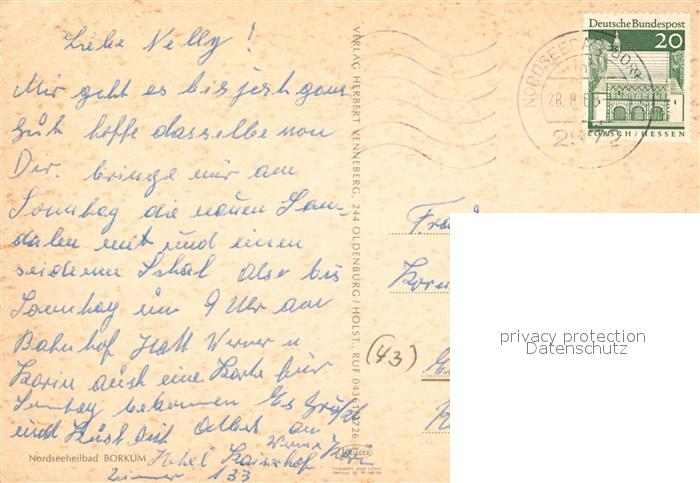 Liebe Nelly!
Mir geht es bis jezt ganz
gut hoffe dasselbe von
Dir. bringe mir am
Sonntag die neuen San-
dalen mit und einen
seidenen Schal Also bis
Sonntag um 9 Uhr am
Bahnhof Hatt Werner u
Karin auch eine Karte für
Sonntag bekommen Es Grüßt
und Küsst Dich Albert an
Werner Karin
Hotel Kaiserhof
Zimmer 133
Nordseeheilbad BORKUM
KRÜGER
VERLAG HERBERT VENNEBERG, 244 OLDENBURG/HOLST. RUF
Deutsche Bundespost
20
LORSCH/HESSEN
NORDSEEBAD BORKUM
28.8.6
2972
Frau
(43)
privacy protection
Datenschutz